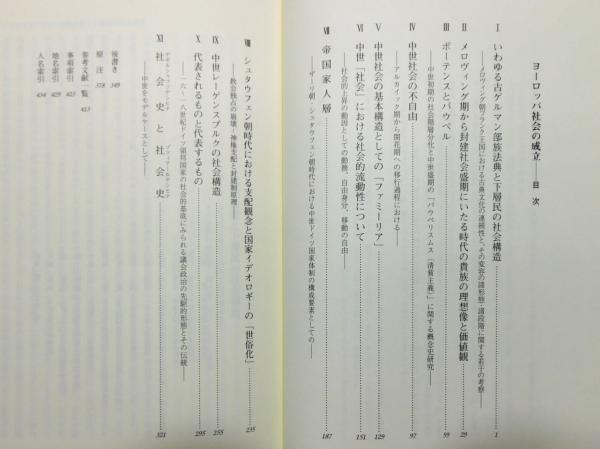 ヨーロッパ社会の成立――目次
Ⅰ いわゆる古ゲルマン部族法典と下層民の社会構造 1
――メロヴィング朝フランク王国における古典文化の連続性と、その変容の諸形態・諸段階に関する若干の考察――
Ⅱ メロヴィング期から封建社会盛期にいたる時代の貴族の理想像と価値観 29
Ⅲ ポーテンスとパウペル 59
――中世初期の社会階層分化と中世盛期の「パウペリスムス（清貧主義）」に関する概念史研究――
Ⅳ 中世社会の不自由 97
――アルカイック期から開花期への移行過程における――
Ⅴ 中世社会の基本構造としての「ファミーリア」 129
Ⅵ 中世「社会」における社会的流動性について 151
――社会的上昇の動因としての勤務、自由身分、移動の自由――
Ⅶ 帝国家人層 187
――ザーリ朝・シュタウフェン朝時代における中世ドイツ国家体制の構成要素としての――
Ⅷ シュタウフェン朝時代における支配観念と国家イデオロギーの「世俗化」 235
――教会独占の崩壊・神権支配と封建制原理――
Ⅸ 中世レーゲンスブルクの社会構造 255
Ⅹ 代表されるものと代表するもの 295
――一六〜一八世紀ドイツ領邦国家の社会的基底にみられる議会政治の先駆的形態とその伝統――
Ⅺ 社会史と社会史 321
――中世をモデルケースとして――
後書き 349
原注 378
参考文献一覧 413
事項索引 425
地名索引 429
人名索引 434